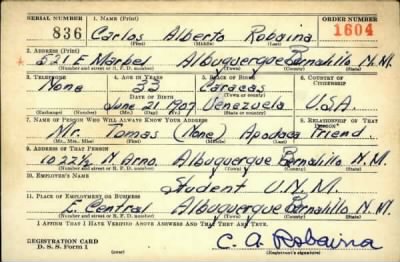 SERIAL NUMBER 1. NAME (Print) ORDER NUMBER
836 Carlos Alberto Robaina 1604
(First) (Middle) (Last)
2. ADDRESS (Print)
521 E Marbel Albuquerque Bernalillo N.M.
(Number and street or R. F. D. number) (Town) (County) (State)
3. TELEPHONE 4. AGE IN YEARS 5. PLACE OF BIRTH 6. COUNTRY OF CITIZENSHIP
None 33 Caracas
DATE OF BIRTH (Town or county)
June 21 1907 Venezuela U.S.A.
(Exchange) (Number) (Mo.) (Day) (Yr.) (State or country)
7. NAME OF PERSON WHO WILL ALWAYS KNOW YOUR ADDRESS 8. RELATIONSHIP OF THAT PERSON
Mr. Tomas (None) Apodaca Friend
(Mr., Mrs., Miss) (First) (Middle) (Last)
9. ADDRESS OF THAT PERSON
1022½ N Arno. Albuquerque Bernalillo N.M.
(Number and street or R. F. D. number) (Town) (County) (State)
10. EMPLOYER'S NAME
Student U.N.M.
11. PLACE OF EMPLOYMENT OR BUSINESS
E. Central Albuquerque Bernalillo N.M.
(Number and street or R. F. D. number) (Town) (County) (State)
I AFFIRM THAT I HAVE VERIFIED ABOVE ANSWERS AND THAT THEY ARE TRUE.
REGISTRATION CARD
D. S. S. Form 1 C. A. Robaina
(Registrant's signature)